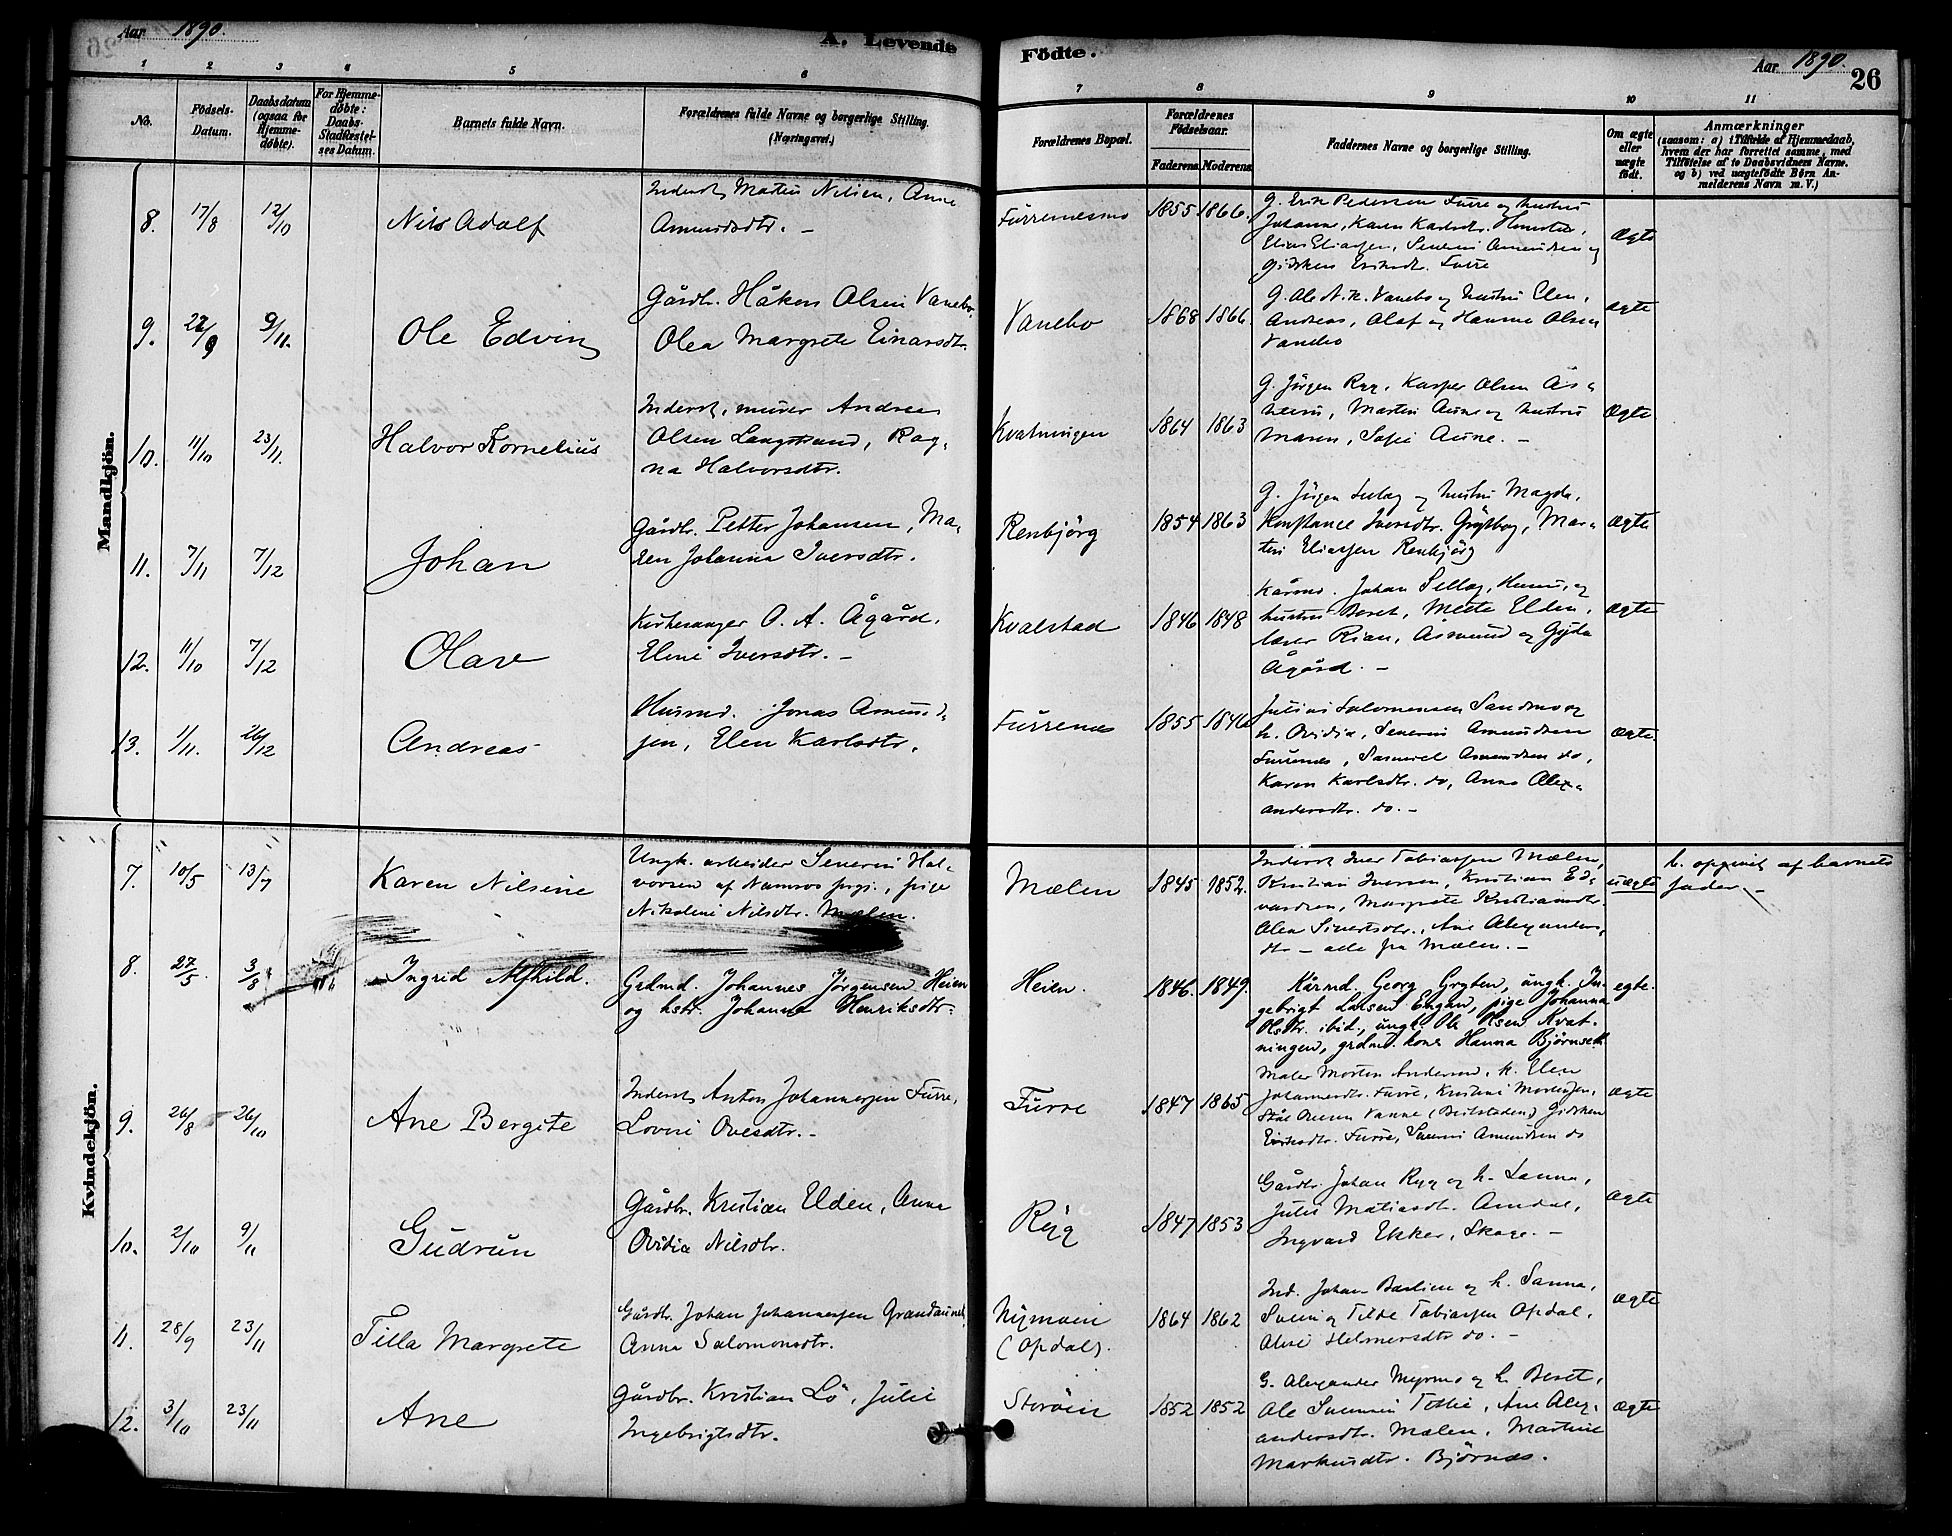 Aar 1890.
A. Levende
Födte.
Aar 1890.
26
1 2 3 4 5 6
7 8 9 10 11
No.
Födsels-Datum.
Daabsdatum (ogsaa for Hjemme-døbte).
For Hjemme-døbte: Daabs-Stadfæstel-ses Datum.
Barnets fulde Navn.
Forældrenes fulde Navne og borgerlige Stilling. (Næringsvei.)
Forældrenes Bopæl.
Forældrenes Fødselsaar.
Faderens. Moderens.
Faddernes Navne og borgerlige Stilling.
Om ægte eller uægte født.
Anmærkninger
(saasom: a) i Tilfælde af Hjemmedaab,
hvem der har forrettet samme, med
Tilføielse af to Daabsvidners Navne.
og b) ved uægtefødte Børn An-
melderens Navn m. V.)
Mandkjön.
8. 17/8 12/10 Nils Adolf
Inderst Martin Nilsen, Anne
Amundsdtr. –
Furrenesmo 1855 1866.
G. Erik Pedersen Furre og hustru
Johanna, Karen Karlsdtr.
Elias Eliassen, Severin Amundsen og
Gidsken Eriksdt. Furre
Ægte
9. 22/9 9/11. Ole Edvin
Gårdbr. Håken Olsen Vanebo,
Olea Margrete Einarsdtr.
Vanebo 1868 1866.
G. Ole A. K. Vanebo og hustru Elen,
Andreas, Olaf og Hanna Olsen
Vanebo
ægte
10. 11/10 23/11. Halvor Kornelius
Inderst, murer Andreas
Olsen Langstrand, Rag-
na Halvorsdtr.
Kvatningen 1864 1863
G. Jörgen Ryg, Kasper Olsen Ås-
heim, Martin Aune og hustru
Maren, Sofie Aune. –
Ægte
11. 7/11 7/12 Johan
Gårdbr. Petter Johansen, Ma-
ren Johanna Iversdtr.
Renbjörg 1854 1863
G. Jörgen Sellæg og hustru Magda,
Konstance Iversdtr. Grötbog, Mar-
tin Eliassen Renbjörg
ægte
12. 11/10 7/12 Olav
Kirkesanger O. A. Ågård,
Eline Iversdtr. –
Kvalstad 1846 1848
Kårmd. Johan Sellæg, Hunn, og
hustru Beret, Mette Elden,
lærer Rian, Åsmund og Gyda
Ågård. –
ægte
13. 1/11. 26/12 Andreas
Husmd. Jonas Amund-
sen, Elen Karlsdtr.
Furrenes 1855 1846
Julius Salomonsen Sandmo og
h. Ovidia, Severin Amundsen
Furrenes, Samuel Amundsen do,
Karen Karlsdtr. do, Anna Alex-
andersdtr. do. –
ægte.
Kvindekjön.
7. 10/5 13/7 Karen Nilsine
Ungk. arbeider Severin Hal-
vorsen af Namsos prgj., pige
Nikoline Nilsdtr. Mælen.
Mælen 1845 1852.
Inderst Iver Tobiassen Mælen,
Kristian Iversen, Kristian Ed-
vardsen, Margrete Kristiansdtr.
Olea Sivertsdtr., Ane Alexanders-
dtr – alle fra Mælen. –
uægte
b. opgivet af barnets
fader –
8. 27/5. 3/8 Ingrid Alfhild.
Grdmd. Johannes Jørgensen Heien
og hstr. Johanna Henriksdtr.
Heien. 1846. 1849.
Kårmd. Georg Gryten, ungk. In-
gebrigt Larsen Engan, pige Johanna
Olsdtr. ibid., ungk. Ole Olsen Kvat-
ningen, grdmd. kone Hanna Bjørnseth
egte.
9. 26/8 26/10 Ane Bergite
Inderst Anton Johannessen Furre,
Lovise Ovesdtr. –
Furre 1847 1865
Maler Morten Andersen, h. Elen
Johannesdtr. Furre, Kristine Mortensen,
Ståle Vanne (Beitstaden) Gidsken
Eriksdtr. Furre, Severin Amundsen do
ægte
10. 2/10 9/11 Gudrun
Gårdbr. Kristian Elden, Anna
Ovidia Nilsdtr.
Ryg 1847 1853
Gårdbr. Johan Ryg og h. Sanna,
Julie Matiasdt. Amdal,
Ingvard Ekker, Skage. –
ægte
11. 28/9 23/11 Tilla Margrete
Gårdbr. Johan Johannessen Grandaunet,
Anna Salomonsdtr.
Nymoen
(Opdal). 1864 1862
Ind. Johan Barlien og h. Sanna,
Svein og Tilde Tobiassen Opdal,
Alise Helmersdtr do. –
ægte
12. 3/10 23/11 Ane
Gårdbr. Kristian Lö, Julie
Ingebrigtsdtr.
Storöen 1852 1852
G. Alexander Myrmo og h. Beret,
Ole Tetlie, Ane Alex-
andersdtr. Mælen, Martine
Markusdtr. Björnes.
ægte